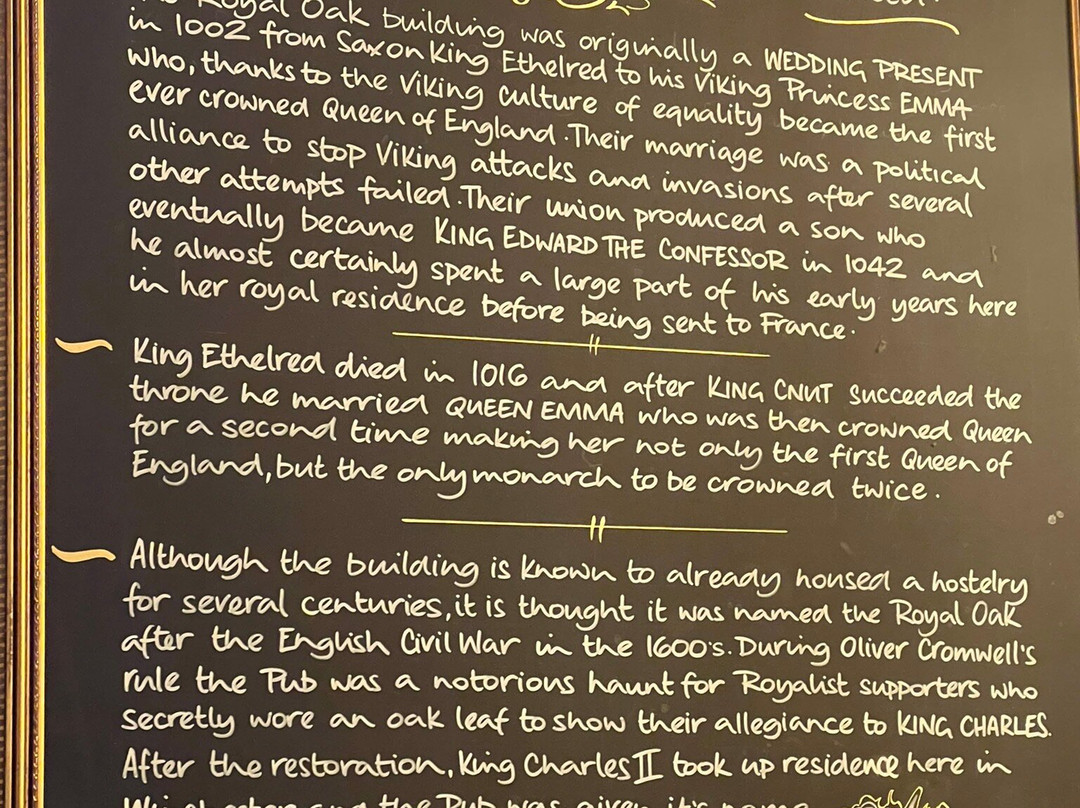 Royal Oak building was originally a WEDDING PRESENT
in 1002 from Saxon King Ethelred to his Viking Princess EMMA
who, thanks to the Viking culture of equality became the first
ever crowned Queen of England. Their marriage was a political
alliance to stop Viking attacks and invasions after several
other attempts failed. Their union produced a son who
eventually became KING EDWARD THE CONFESSOR in 1042 and
he almost certainly spent a large part of his early years here
in her royal residence before being sent to France.
King Ethelred died in 1016 and after KING CNUT succeeded the
throne he married QUEEN EMMA who was then crowned Queen
for a second time making her not only the first Queen of
England, but the only monarch to be crowned twice.
Although the building is known to already housed a hostelry
for several centuries, it is thought it was named the Royal Oak
after the English Civil War in the 1600's. During Oliver Cromwell's
rule the Pub was a notorious haunt for Royalist supporters who
secretly wore an oak leaf to show their allegiance to KING CHARLES.
After the restoration, King Charles II took up residence here in
and the Pub was given it's name